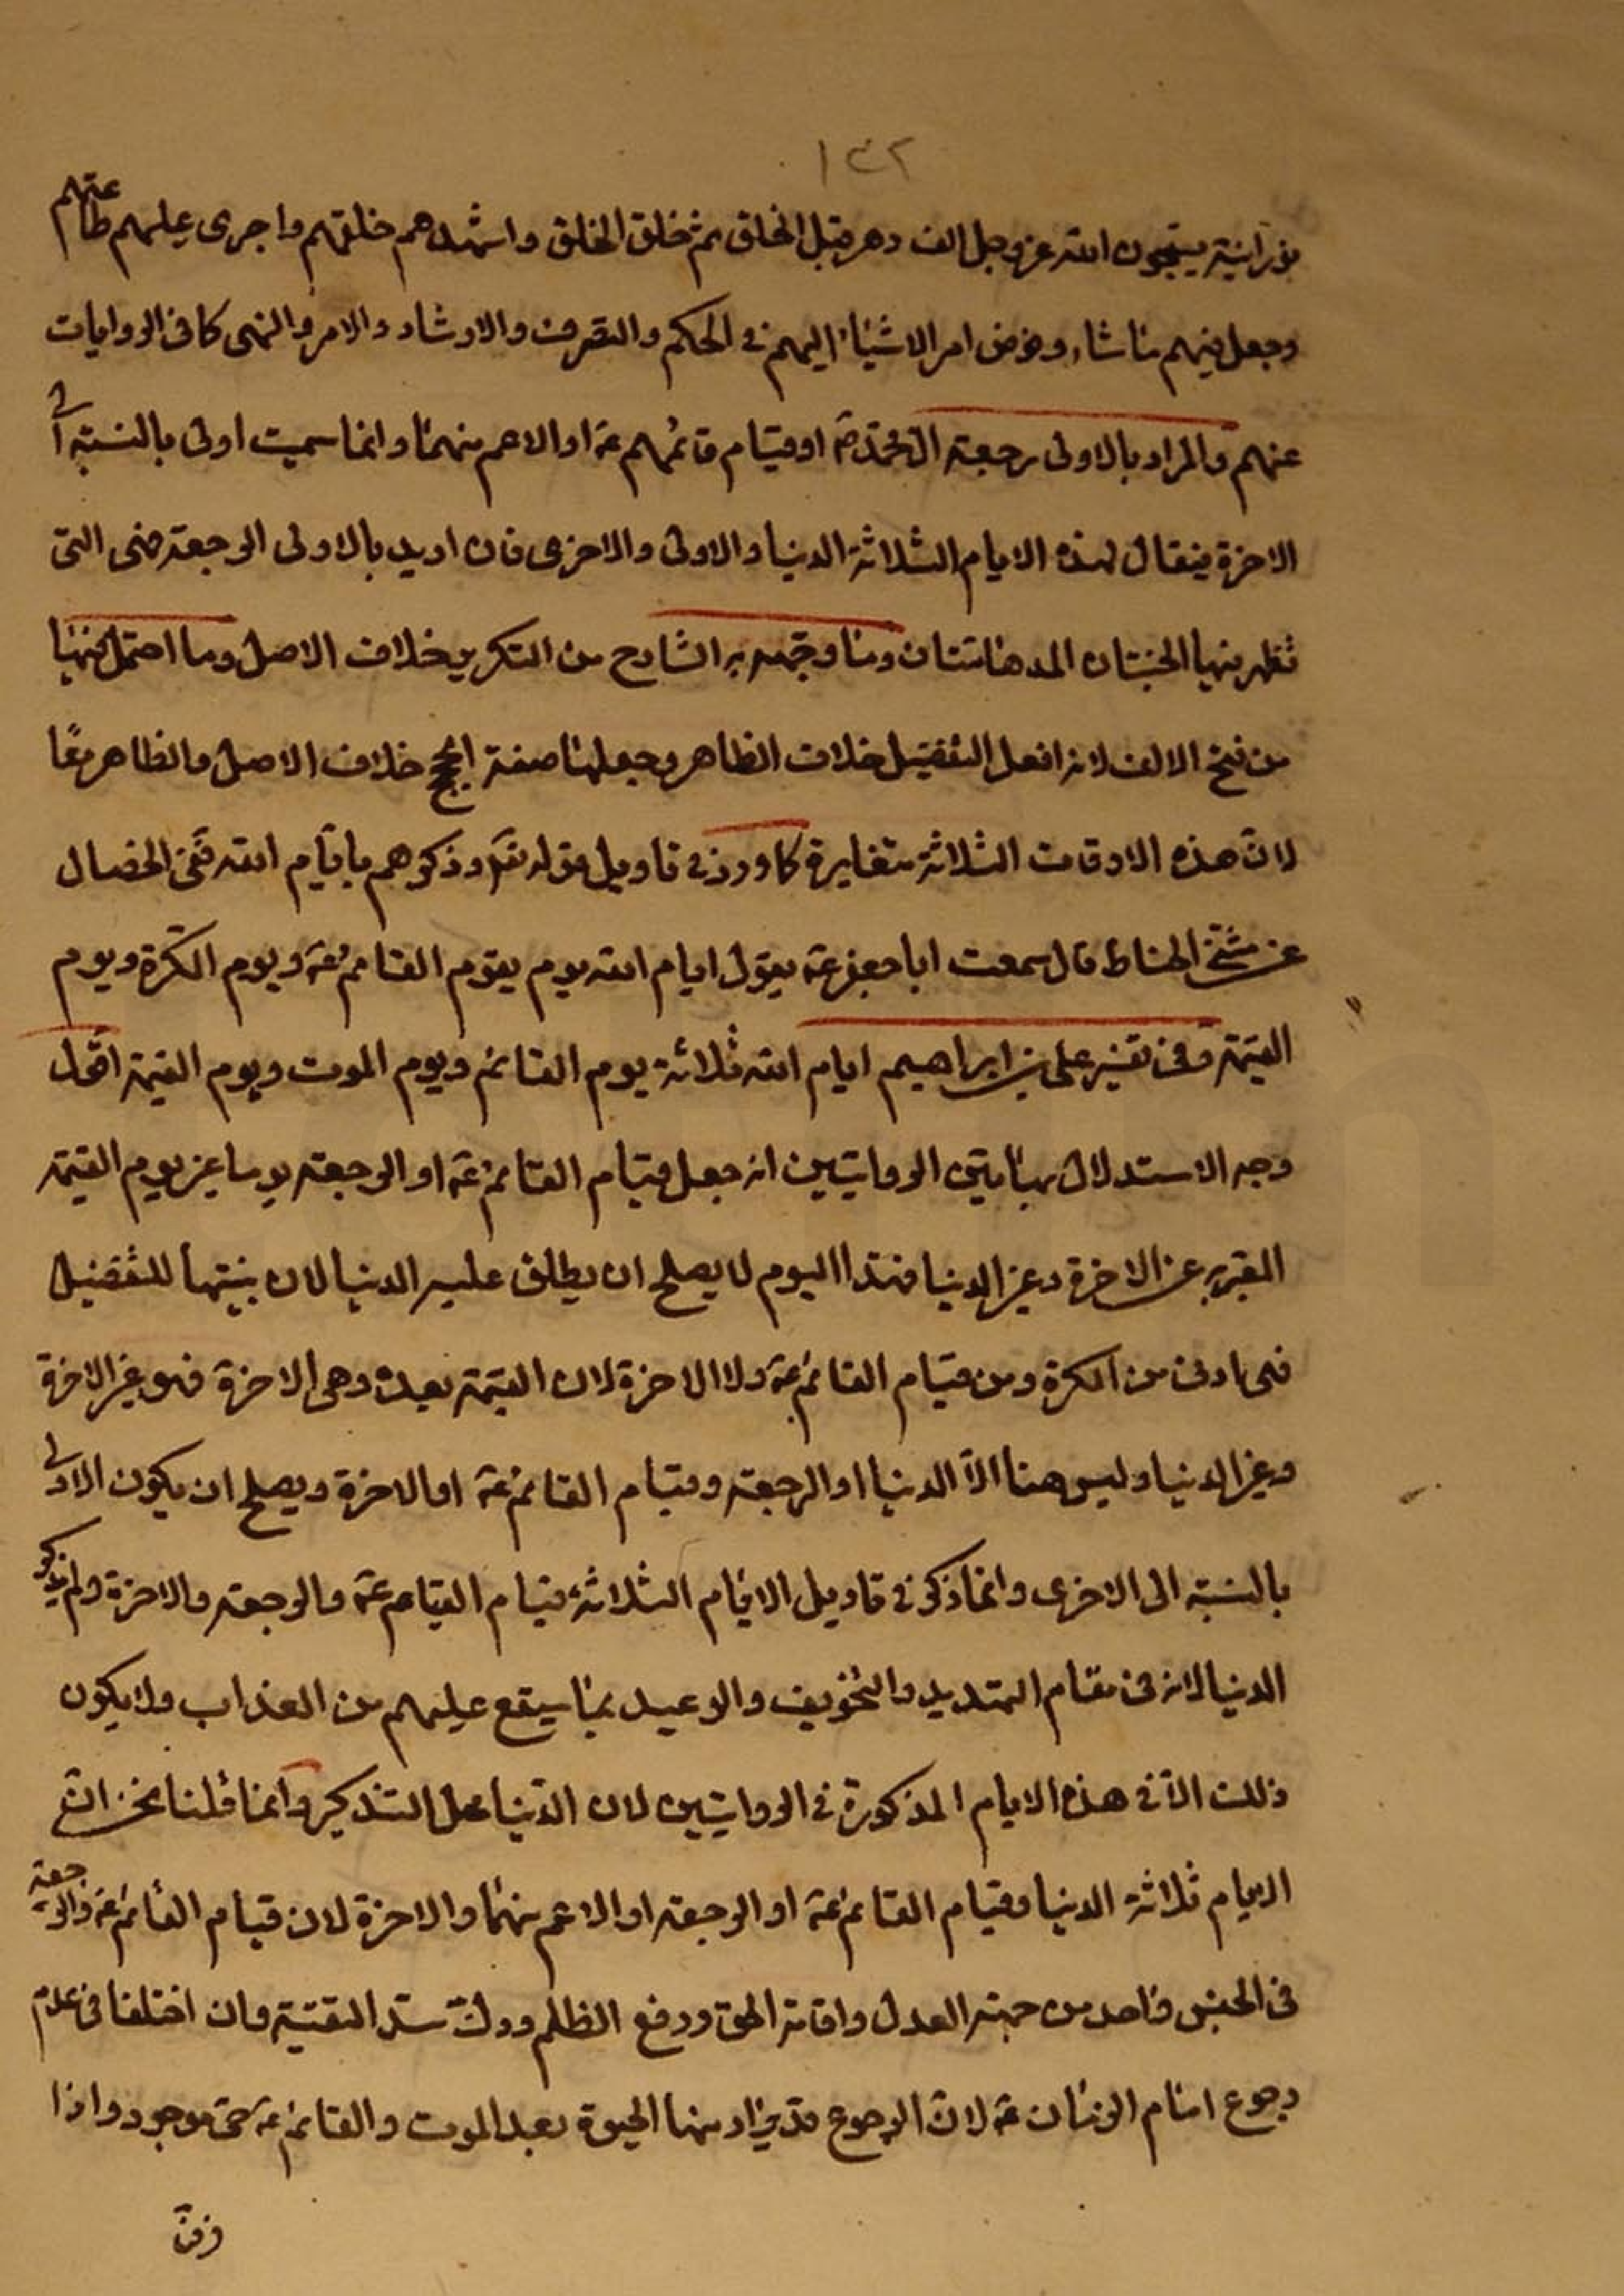 ١٣٢
نورانية يسبحون الله عز وجل الف دهر قبل الخلق ثم خلق الخلق واشهدهم خلقهم واجرى عليهم طاعتهم
وجعل فيهم ما شاء وفوض امر الاشياء اليهم في الحكم والتصرف والارشاد والامر والنهى كما في الروايات
عنهم والمراد بالاولى رجعة آل محمد ص او قيام قائمهم ع او الاعم منهما وانما سميت اولى بالنسبة الى
الاخرة فيقال لهذه الايام الثلاثة الدنيا والاولى والاخرى فان اريد بالاولى الرجعة فهى التى
تظهر فيها الجنتان المدهامتان وما وجهه به الشارح من التكرير خلاف الاصل وما احتمل فيها
من فتح الالف لانه افعل التفضيل خلاف الظاهر وجعلها صفة الحجج خلاف الاصل والظاهر معًا
لان هذه الاوقات الثلاثة متغايرة كما ورد في تاويل قوله تعالى وذكرهم بايام الله ففى الخصال
عن مثنى الحناط قال سمعت ابا جعفر ع يقول ايام الله يوم يقوم القائم ع ويوم الكرة ويوم
القيمة وفى تفسير على بن ابراهيم ايام الله ثلاثة يوم القائم ويوم الموت ويوم القيمة اقول
وجه الاستدلال بهاتين الروايتين انه جعل قيام القائم ع او الرجعة يوما غير يوم القيمة
المعبر به عن الاخرة وغير الدنيا فهذا اليوم لا يصلح ان يطلق عليه الدنيا لان بنيتها للتفضيل
فهى ادنى من الكرة ومن قيام القائم ع ولا الاخرة لان القيمة بعده وهى الاخرة فهو غير الاخرة
وغير الدنيا وليس هنا الا الدنيا او الرجعة وقيام القائم ع او الاخرة ويصلح ان يكون الاولى
بالنسبة الى الاخرى وانما ذكر في تاويل الايام الثلاثة قيام القائم ع والرجعة والاخرة ولم يذكر
الدنيا لانه في مقام التهديد والتخويف والوعيد بما سيقع عليهم من العذاب ولا يكون
ذلك الا في هذه الايام المذكورة في الروايتين لان الدنيا محل التذكير وانما قلنا نحن ان
الايام ثلاثة الدنيا وقيام القائم ع او الرجعة او الاعم منهما والاخرة لان قيام القائم ع والرجعة
في الجنس واحد من جهة العدل واقامة الحق ورفع الظلم ودك سد التقية وان اختلفا في عدم
رجوع امام الزمان ع لان الرجوع قد يراد منها الحيوة بعد الموت والقائم ع حى موجود واذا